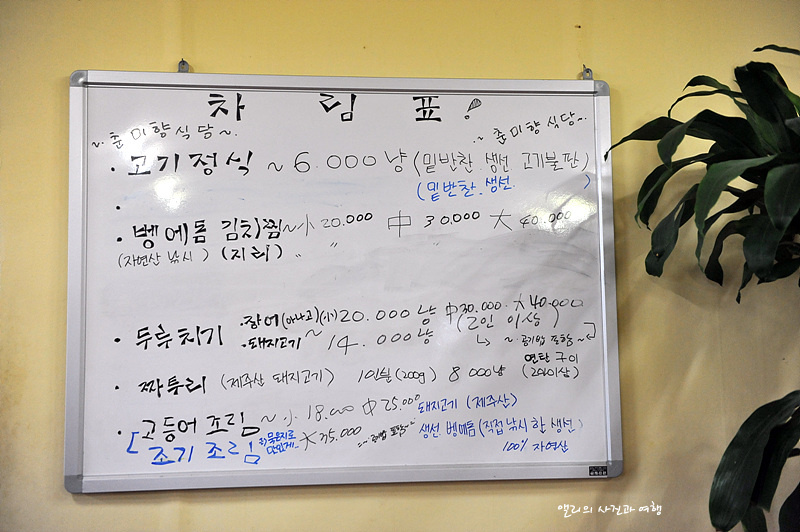 차림표!
~춘미향식당~.
~춘미향식당~.
· 고기정식 ~ 6.000냥 (밑반찬.생선 고기불판)
(밑반찬.생선 )
·
· 벵에돔 김치찜 ~ 小 20.000 中 30.000 大 40.000
(자연산 낚시) (지리) 〃 〃
· 두루치기 · 장어(아나고)(小) 20.000냥 中 30.000 大 40.000
· 돼지고기 ~ 14.000냥 (2인 이상)
~ 공기밥 포함 ~
· 짜투리 (제주산 돼지고기) 1인분(200g) 8000냥 연탄구이 (2인이상)
· 고등어 조림 ~ 小 18.000 中 25.000 돼지고기 (제주산)
[조기 조림 大 35.000 생선. 벵에돔 (직접 낚시한 생선)
100% 자연산
앨리의 사진과 여행